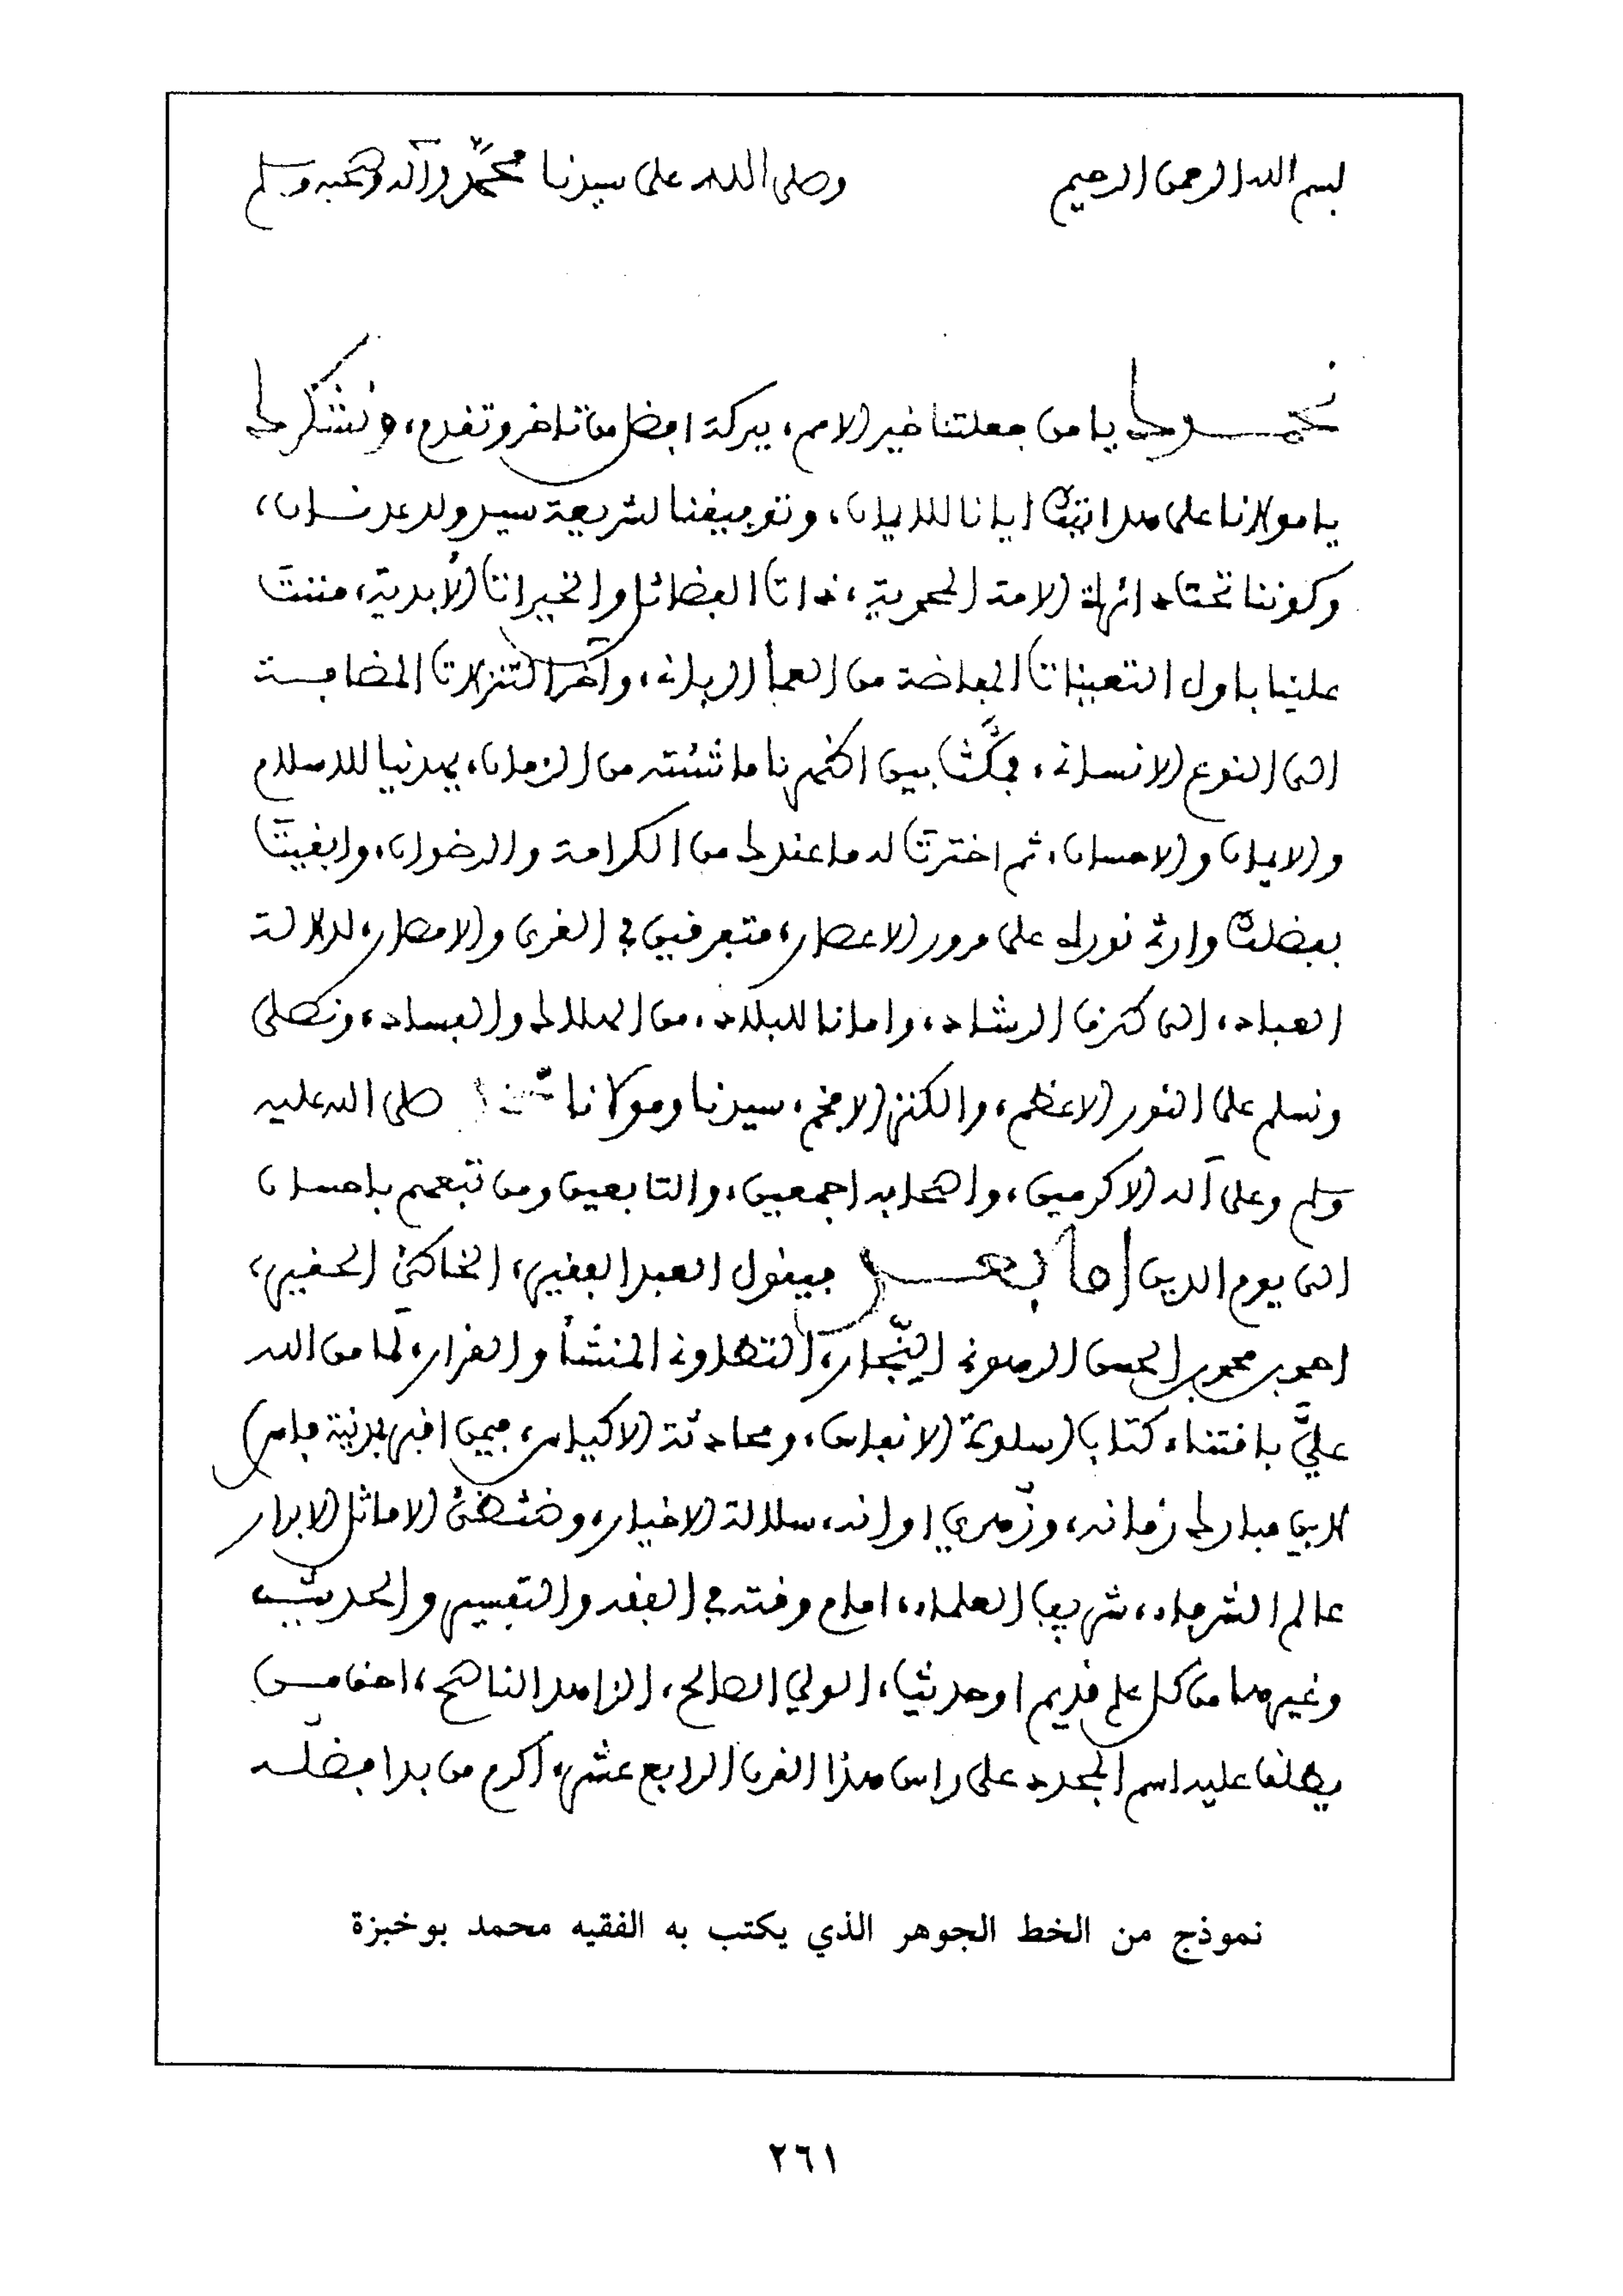 بسم الله الرحمن الرحيم وصلى الله على سيدنا محمد وآله وصحبه وسلم
نحمدك يا من جعلتنا خير الامم، ببركة افضل من تاخر وتقدم، ونشكرك
يا مولانا على هدايتك ايانا للايمان، وتوفيقنا لشريعة سيد ولد عدنان،
وكوننا تحت دائرة الامة المحمدية، ذات الفضائل والخيرات الأبدية، مننت
علينا باول التعينات المفاضة من العمأ الرباني، وآخر التنزلات المضافة
الى النوع الانساني، فمكث بين اظهرنا ما شئته من الزمان، يهدينا للاسلام
والايمان والاحسان، ثم اخترت له ما عندك من الكرامة والرضوان، وابقيت
بفضلك وارثي نوره على مرور الاعصار، متفرقين في القرى والامصار، لدلالة
العباد، الى طرق الرشاد، وامانا للبلاد، من الهلاك والفساد، ونصلي
ونسلم على النور الاعظم، والكنز الافخم، سيدنا ومولانا صلى الله عليه
وسلم وعلى آله الاكرمين، واصحابه اجمعين، والتابعين ومن تبعهم باحسان
الى يوم الدين أما بعد فيقول العبد الفقير، الخاطئ الحقير،
احمد بن محمد بن الحسن الرهوني النجار، التطاوني المنشأ والقرار، لما من الله
عليَّ باقتناء كتاب (سلوة الانفاس، ومحادثة الاكياس، فيمن اقبر بمدينة فاس)
لابن مبارك زمانه، وزهري اوانه، سلالة الاخيار، وضئضئ الاماثل الابرار
عالم الشرفاء، شريف العلماء، امام وقته في الفقه والتفسير والحديث،
وغيرهما من كل علم قديم او حديث، الولي الصالح، الزاهد الناصح، احق من
يطلق عليه اسم المجدد على راس هذا القرن الرابع عشر، أكرم من بدا فضله
نموذج من الخط الجوهر الذي يكتب به الفقيه محمد بوخبزة
٢٦١